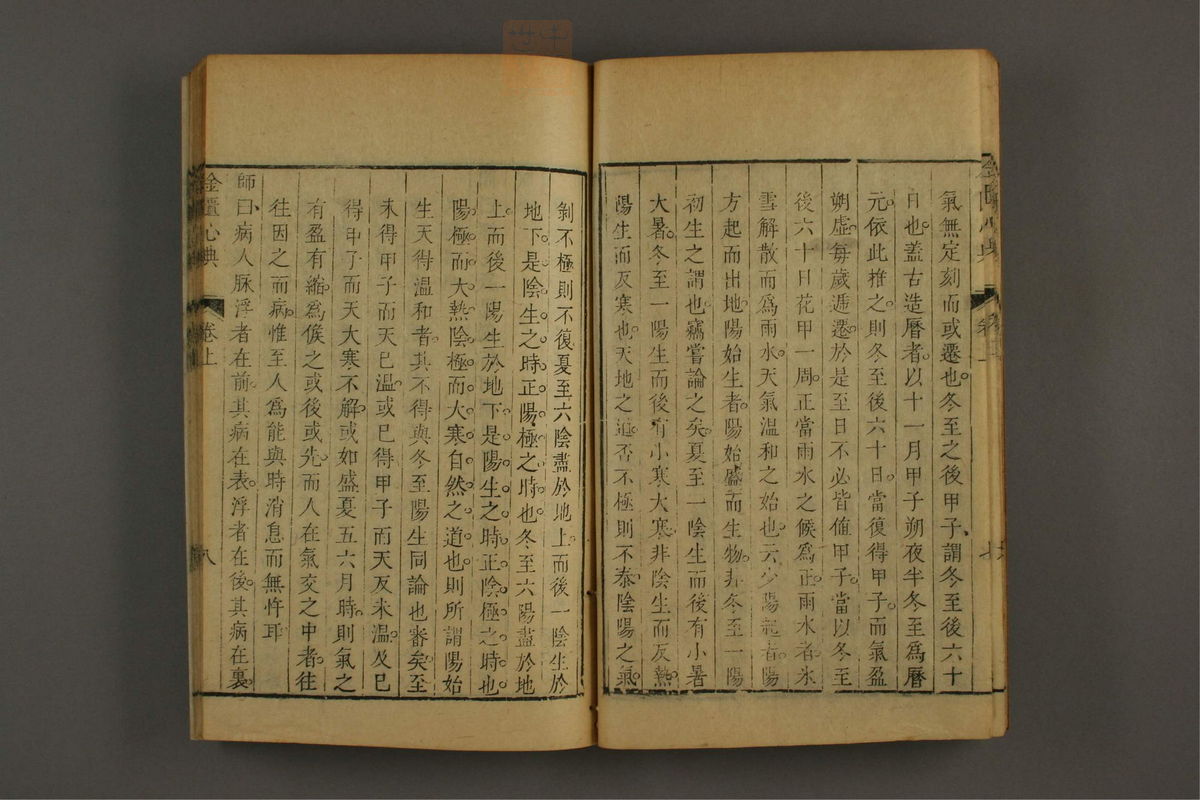 氣無定刻而或遷也冬至之後甲子謂冬至後六十
日也蓋古造曆者以十一月甲子朔夜半冬至爲曆
元依此推之則冬至後六十日當復得甲子而氣盈
朔虛每歲遞遷於是至日不必皆値甲子當以冬至
後六十日花甲一周正當雨水之候爲正雨水者氷
雪解散而爲雨水天氣温和之始也云少陽起者陽
方起而出地陽始生者陽始盛而生物非冬至一陽
初生之謂也竊嘗論之矣夏至一陰生而後有小暑
大暑冬至一陽生而後有小寒大寒非陰生而反熱
陽生而反寒也天地之道否不極則不泰陰陽之氣
剝不極則不復夏至六陰盡於地上而後一陰生於
地下是陰生之時正陽極之時也冬至六陽盡於地
上而後一陽生於地下是陽生之時正陰極之時也
陽極而大熱陰極而大寒自然之道也則所謂陽始
生天得温和者其不得與冬至陽生同論也審矣至
未得甲子而天已温或已得甲子而天反未温及已
得甲子而天大寒不解或如盛夏五六月時則氣之
有盈有縮爲候之或後或先而人在氣交之中者往
往因之而病惟至人爲能與時消息而無忤耳
師曰病人脉浮者在前其病在表浮者在後其病在裏
金匱心典
卷上
八